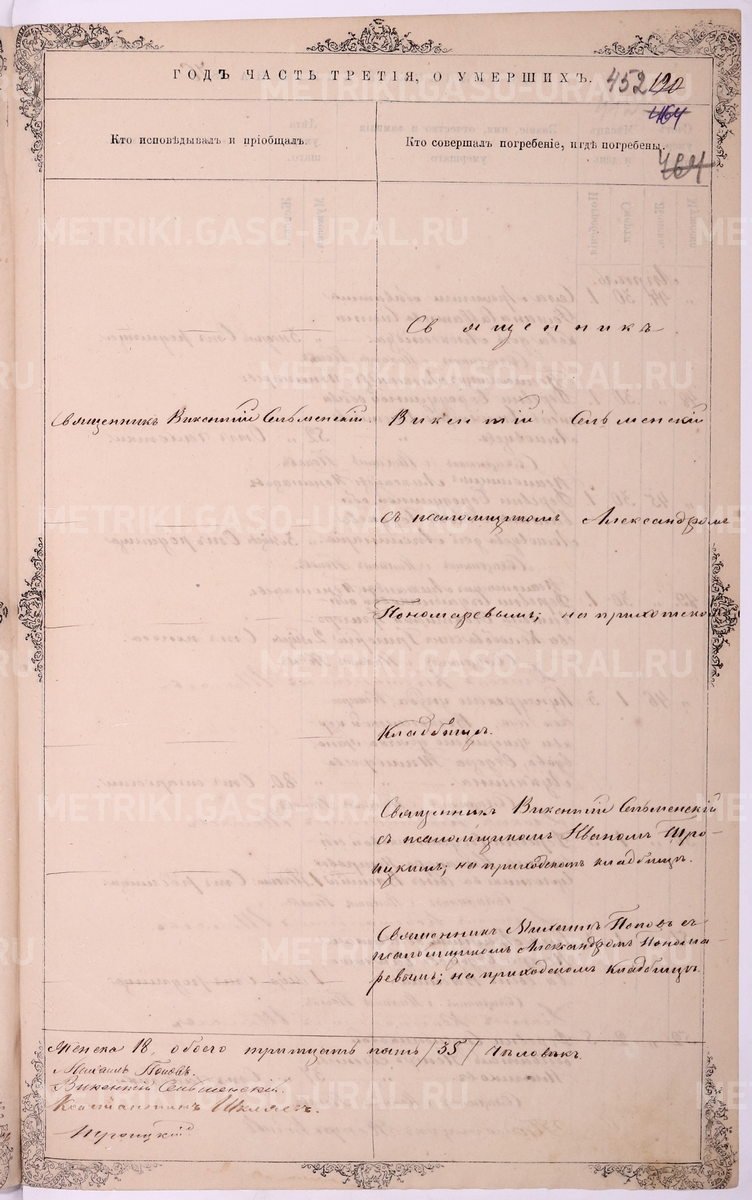 ГОДЪ ЧАСТЬ ТРЕТІЯ, О УМЕРШИХЪ. 452 120
464
464
Кто исповѣдывалъ и пріобщалъ.
Кто совершалъ погребеніе, и гдѣ погребены.
METRIKI.GASO-URAL.RU
Священникъ
Священникъ Викентій Сельменскій
Викентій Сельменскій
съ псаломщикомъ Александромъ
Пономаревымъ; на приходском
кладбищѣ.
Священникъ Викентій Сельменскій
съ псаломщикомъ Иваномъ Тро-
ицкимъ; на приходскомъ кладбищѣ.
Священникъ Михаилъ Поповъ съ
псаломщикомъ Александромъ Понома-
ревымъ; на приходскомъ кладбищѣ.
Женска 18, обоего тритцать пять /35/ человѣкъ
Михаилъ Поповъ.
Викентій Сельменскій.
Константинъ Шкляевъ.
Троицкій